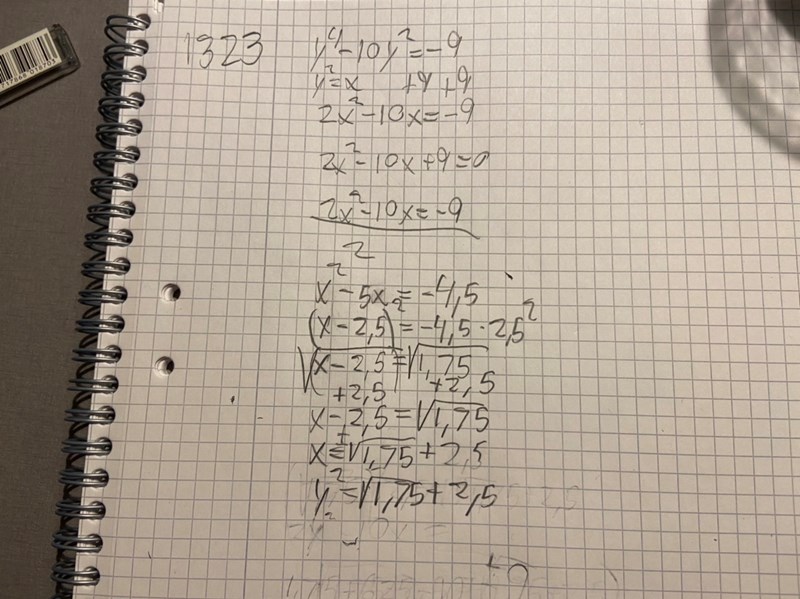 1323 y⁴-10y²=-9
y²=x +9 +9
2x²-10x=-9
2x²-10x+9=0
2x²-10x=-9
2
x²-5x=-4,5
(x-2,5)²=-4,5·2,5²
√(x-2,5)²=√1,75
+2,5 +2,5
x-2,5=√1,75
x=±√1,75+2,5
y²=√1,75+2,5